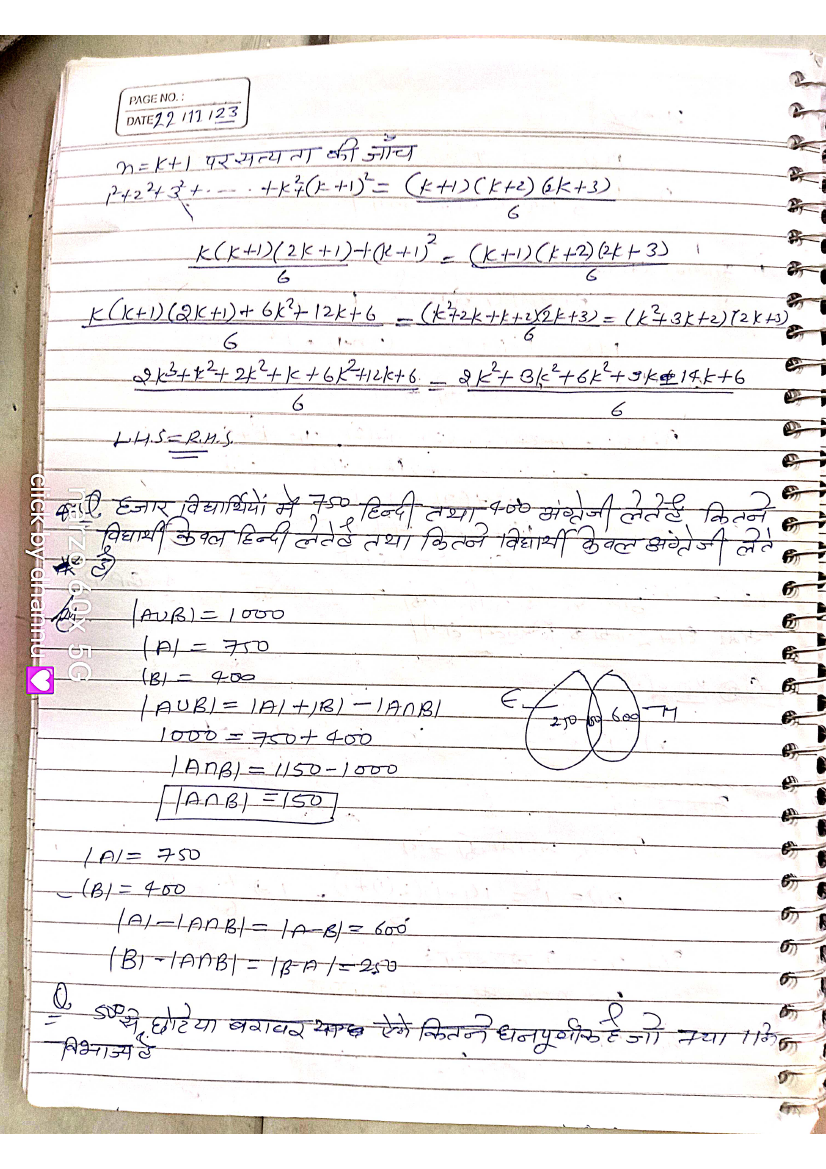 PAGE NO.:
DATE 22/11/23
n=k+1 पर सत्यता की जाँच
1²+2²+3²+ - - - - - +k²+(k+1)² = (k+1)(k+2)(2k+3)/6
k(k+1)(2k+1)+(k+1)²/6 = (k+1)(k+2)(2k+3)/6
k(k+1)(2k+1)+6k²+12k+6/6 = (k²+2k+k+2)(2k+3)/6 = (k²+3k+2)(2k+3)
2k³+k²+2k²+k+6k²+12k+6/6 = 2k²+3k²+6k²+9k+14k+6/6
L.H.S = R.H.S.
Q हजार विद्यार्थियों में 750 हिन्दी तथा 400 अंग्रेजी लेते है कितने
विद्यार्थी केवल हिन्दी लेते है तथा कितने विद्यार्थी केवल अंग्रेजी लेते
है)
|A∪B| = 1000
|A| = 750
|B| = 400
|A∪B| = |A|+|B| - |A∩B|
1000 = 750+400
|A∩B| = 1150-1000
|A∩B| = 150
E 250 600 H
|A| = 750
|B| = 400
|A|-|A∩B| = |A-B| = 600
|B|-|A∩B| = |B-A| = 250
Q 500 से छोटे या बराबर ऐसे कितने धनपूर्णांक है जो 7 या 11 से
विभाज्य है
click by dhannu
narzo 60x 5G